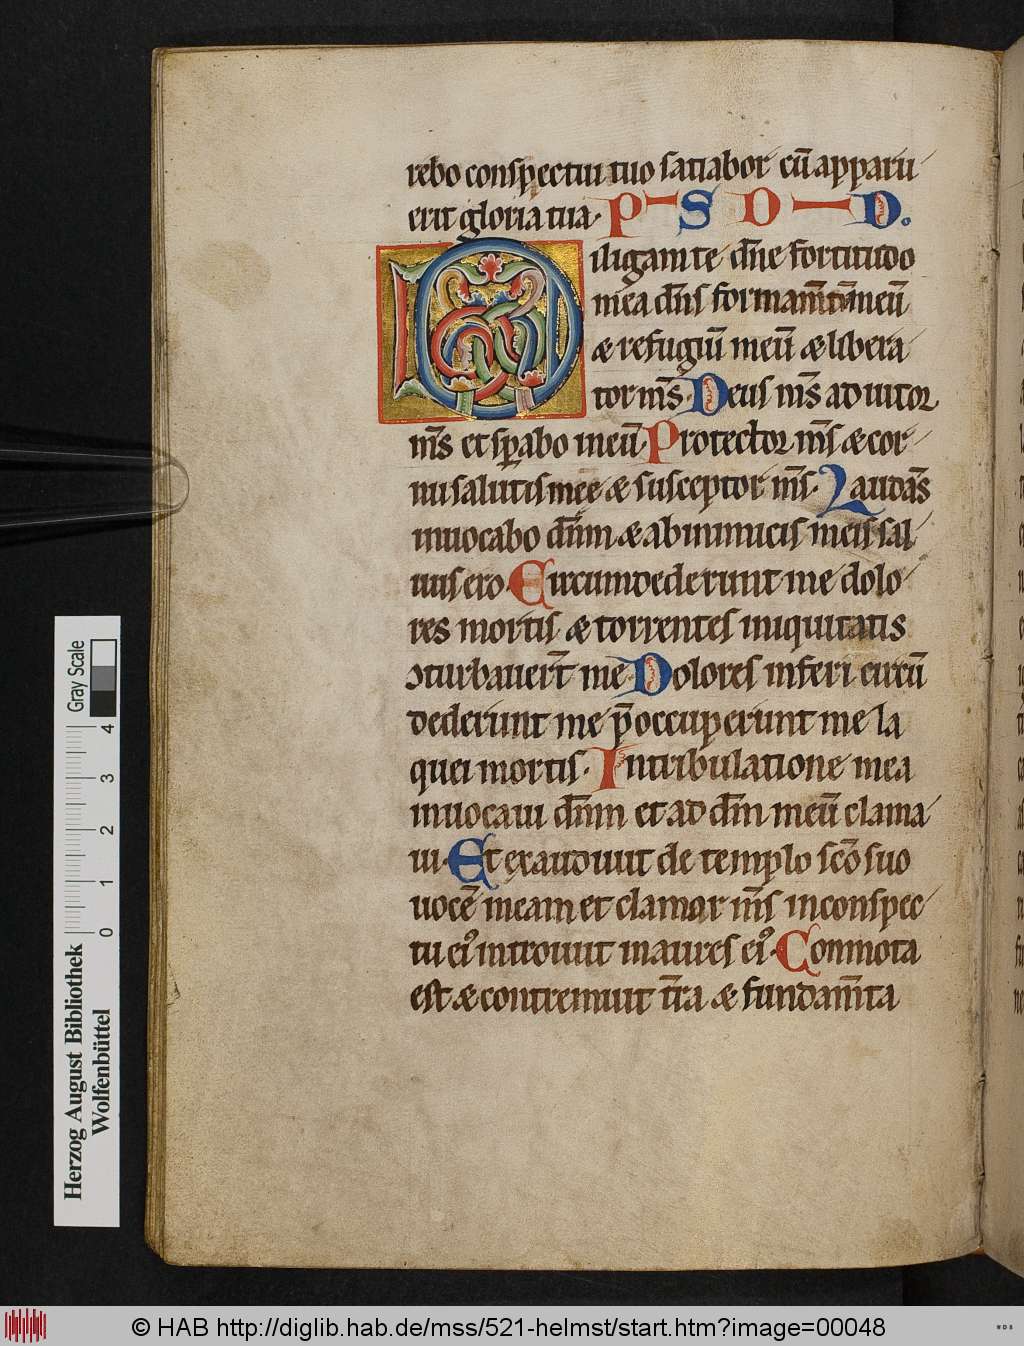 rebo conspectui tuo satiabor cū apparu
erit gloria tua. P S D D.
Diligam te dn̄e fortitudo
mea dn̄s formam̄tū meū
& refugiū meū & libera
tor m̄s. Deus m̄s adiutor
m̄s et sꝑabo in eū. Protector m̄s & cor
nu salutis meę & susceptor m̄s. Laudās
inuocabo dn̄m & ab inimicis meis sal
uus ero. Circumdederunt me dolo
res mortis & torrentes iniquitatis
ↄturbauer̄t me. Dolores inferi circū
dederunt me p̄occuperunt me la
quei mortis. In tribulatione mea
inuocaui dn̄m et ad dm̄ meū clama
ui. Et exaudiuit de templo sc̄o suo
uocē meam et clamor m̄s in conspec
tu ei᾿ introiuit in aures ei᾿. Conmota
est & contremuit t̄ra & fundam̄ta
Herzog August Bibliothek
Wolfenbüttel
0 1 2 3 4
Gray Scale
© HAB http://diglib.hab.de/mss/521-helmst/start.htm?image=00048